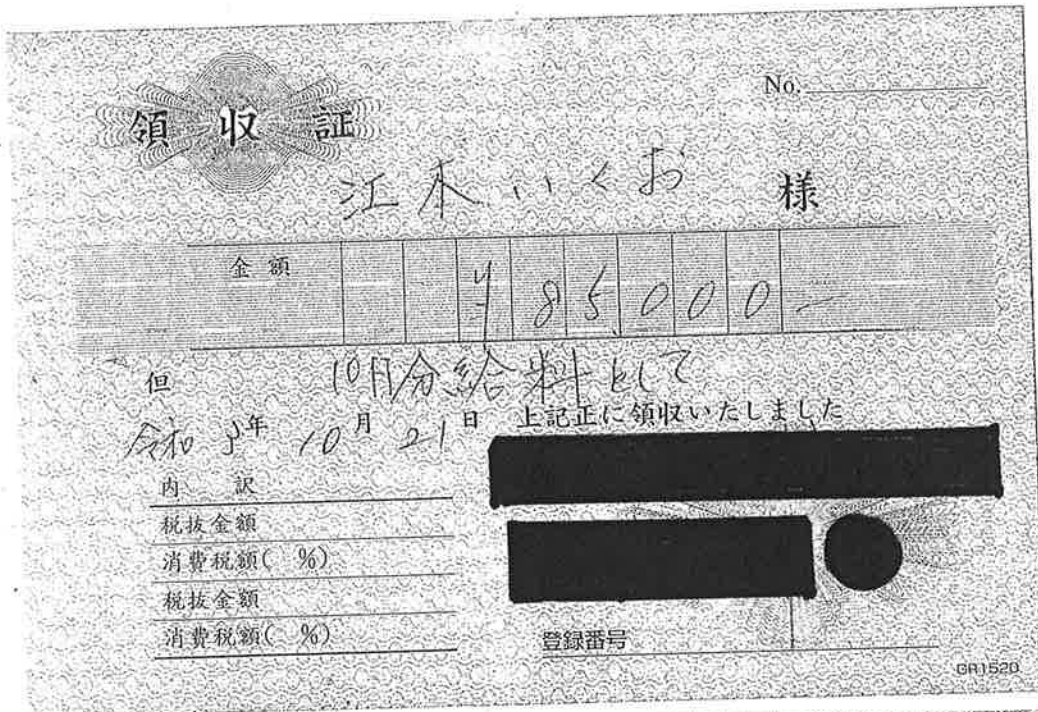 No.
領収証
江本いくお 様
金額 ¥85,000-
但 10月分給料として
令和5年10月21日 上記正に領収いたしました
内 訳
税抜金額
消費税額( %)
税抜金額
消費税額( %)
登録番号
GR1520